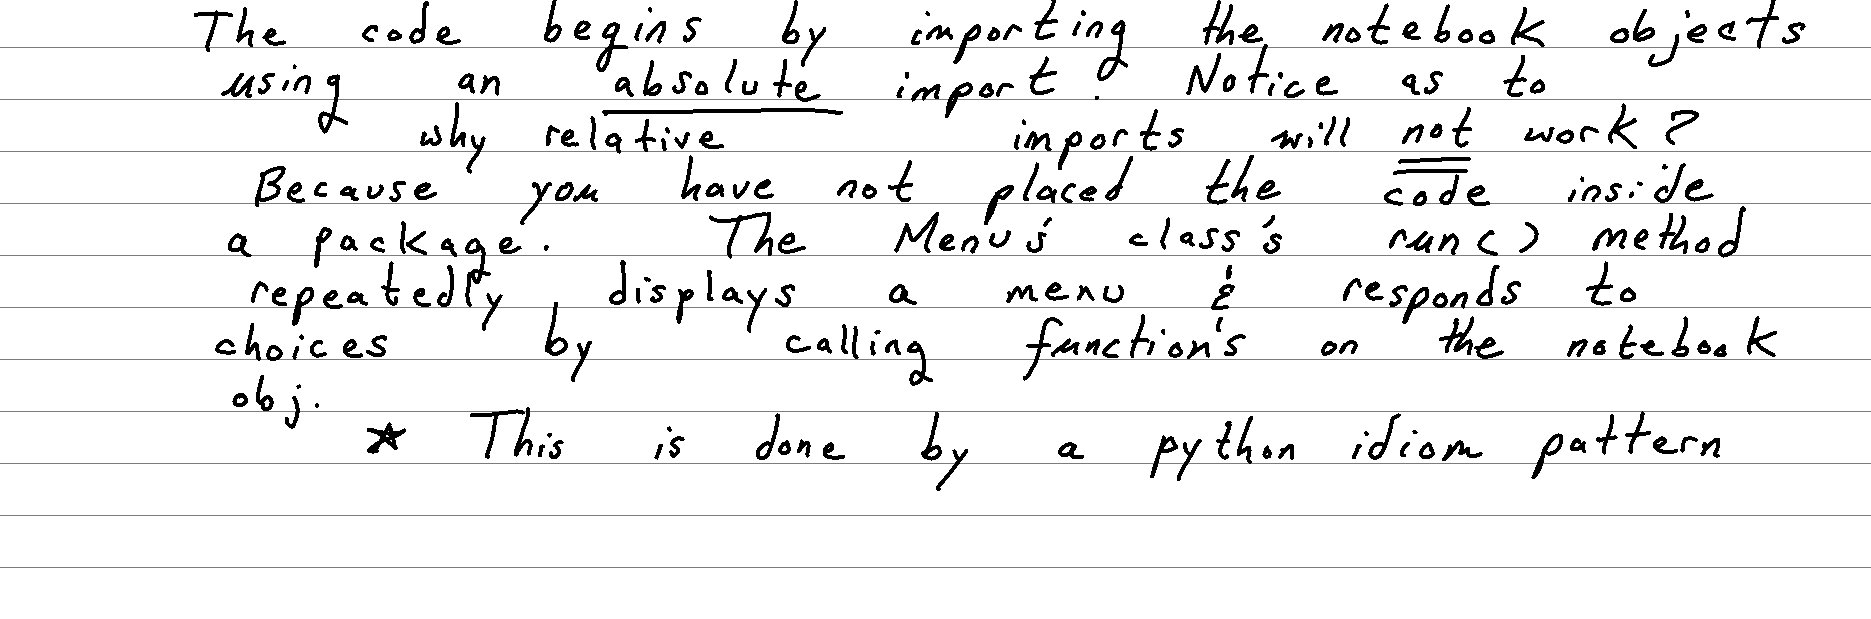 The code begins by importing the notebook objects
using an absolute import. Notice as to
why relative imports will not work?
Because you have not placed the code inside
a package. The Menu's class's run() method
repeatedly displays a menu & responds to
choices by calling function's on the notebook
obj.
★ This is done by a python idiom pattern